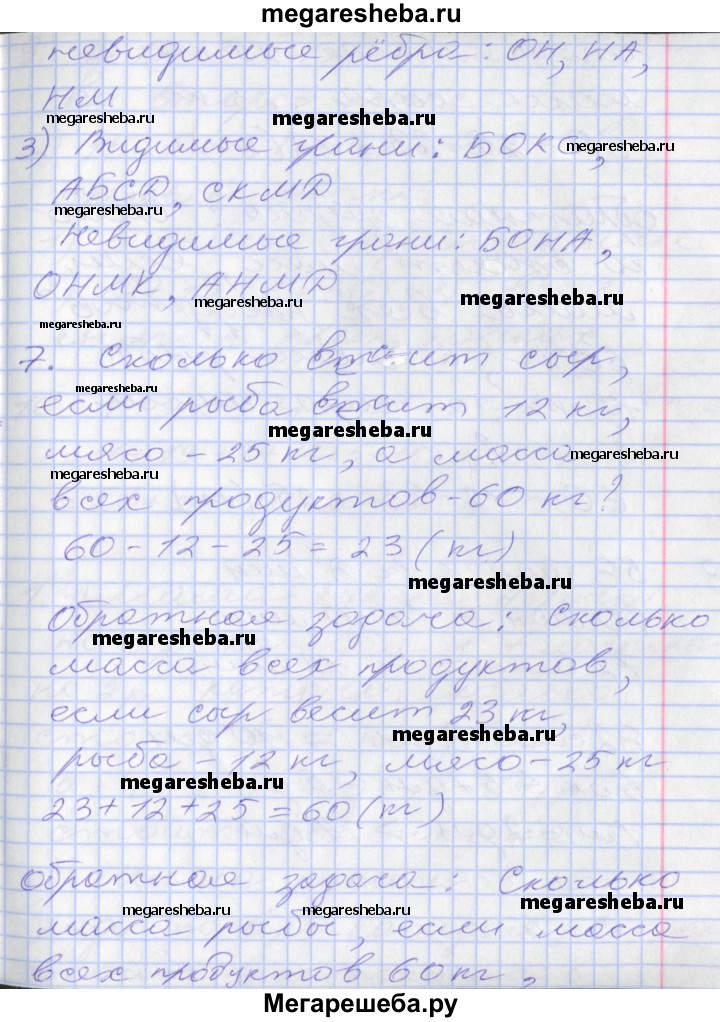 megaresheba.ru
невидимые рёбра: ОН, НА,
НМ
megaresheba.ru megaresheba.ru megaresheba.ru
3) Видимые грани: БОКС,
megaresheba.ru megaresheba.ru
АБСD, СКМD
megaresheba.ru
Невидимые грани: БОНА,
ОНМК, АНМD
megaresheba.ru megaresheba.ru
megaresheba.ru
7. Сколько весит сыр,
megaresheba.ru
если рыба весит 12 кг,
megaresheba.ru
мясо - 25 кг, а масса
megaresheba.ru megaresheba.ru
всех продуктов - 60 кг?
60 - 12 - 25 = 23 (кг)
megaresheba.ru
Обратная задача: Сколько
megaresheba.ru
масса всех продуктов,
если сыр весит 23 кг,
megaresheba.ru
рыба - 12 кг, мясо - 25 кг
megaresheba.ru
23 + 12 + 25 = 60 (кг)
Обратная задача: Сколько
megaresheba.ru megaresheba.ru megaresheba.ru
масса рыбы, если масса
всех продуктов 60 кг,
Мегарешеба.ру